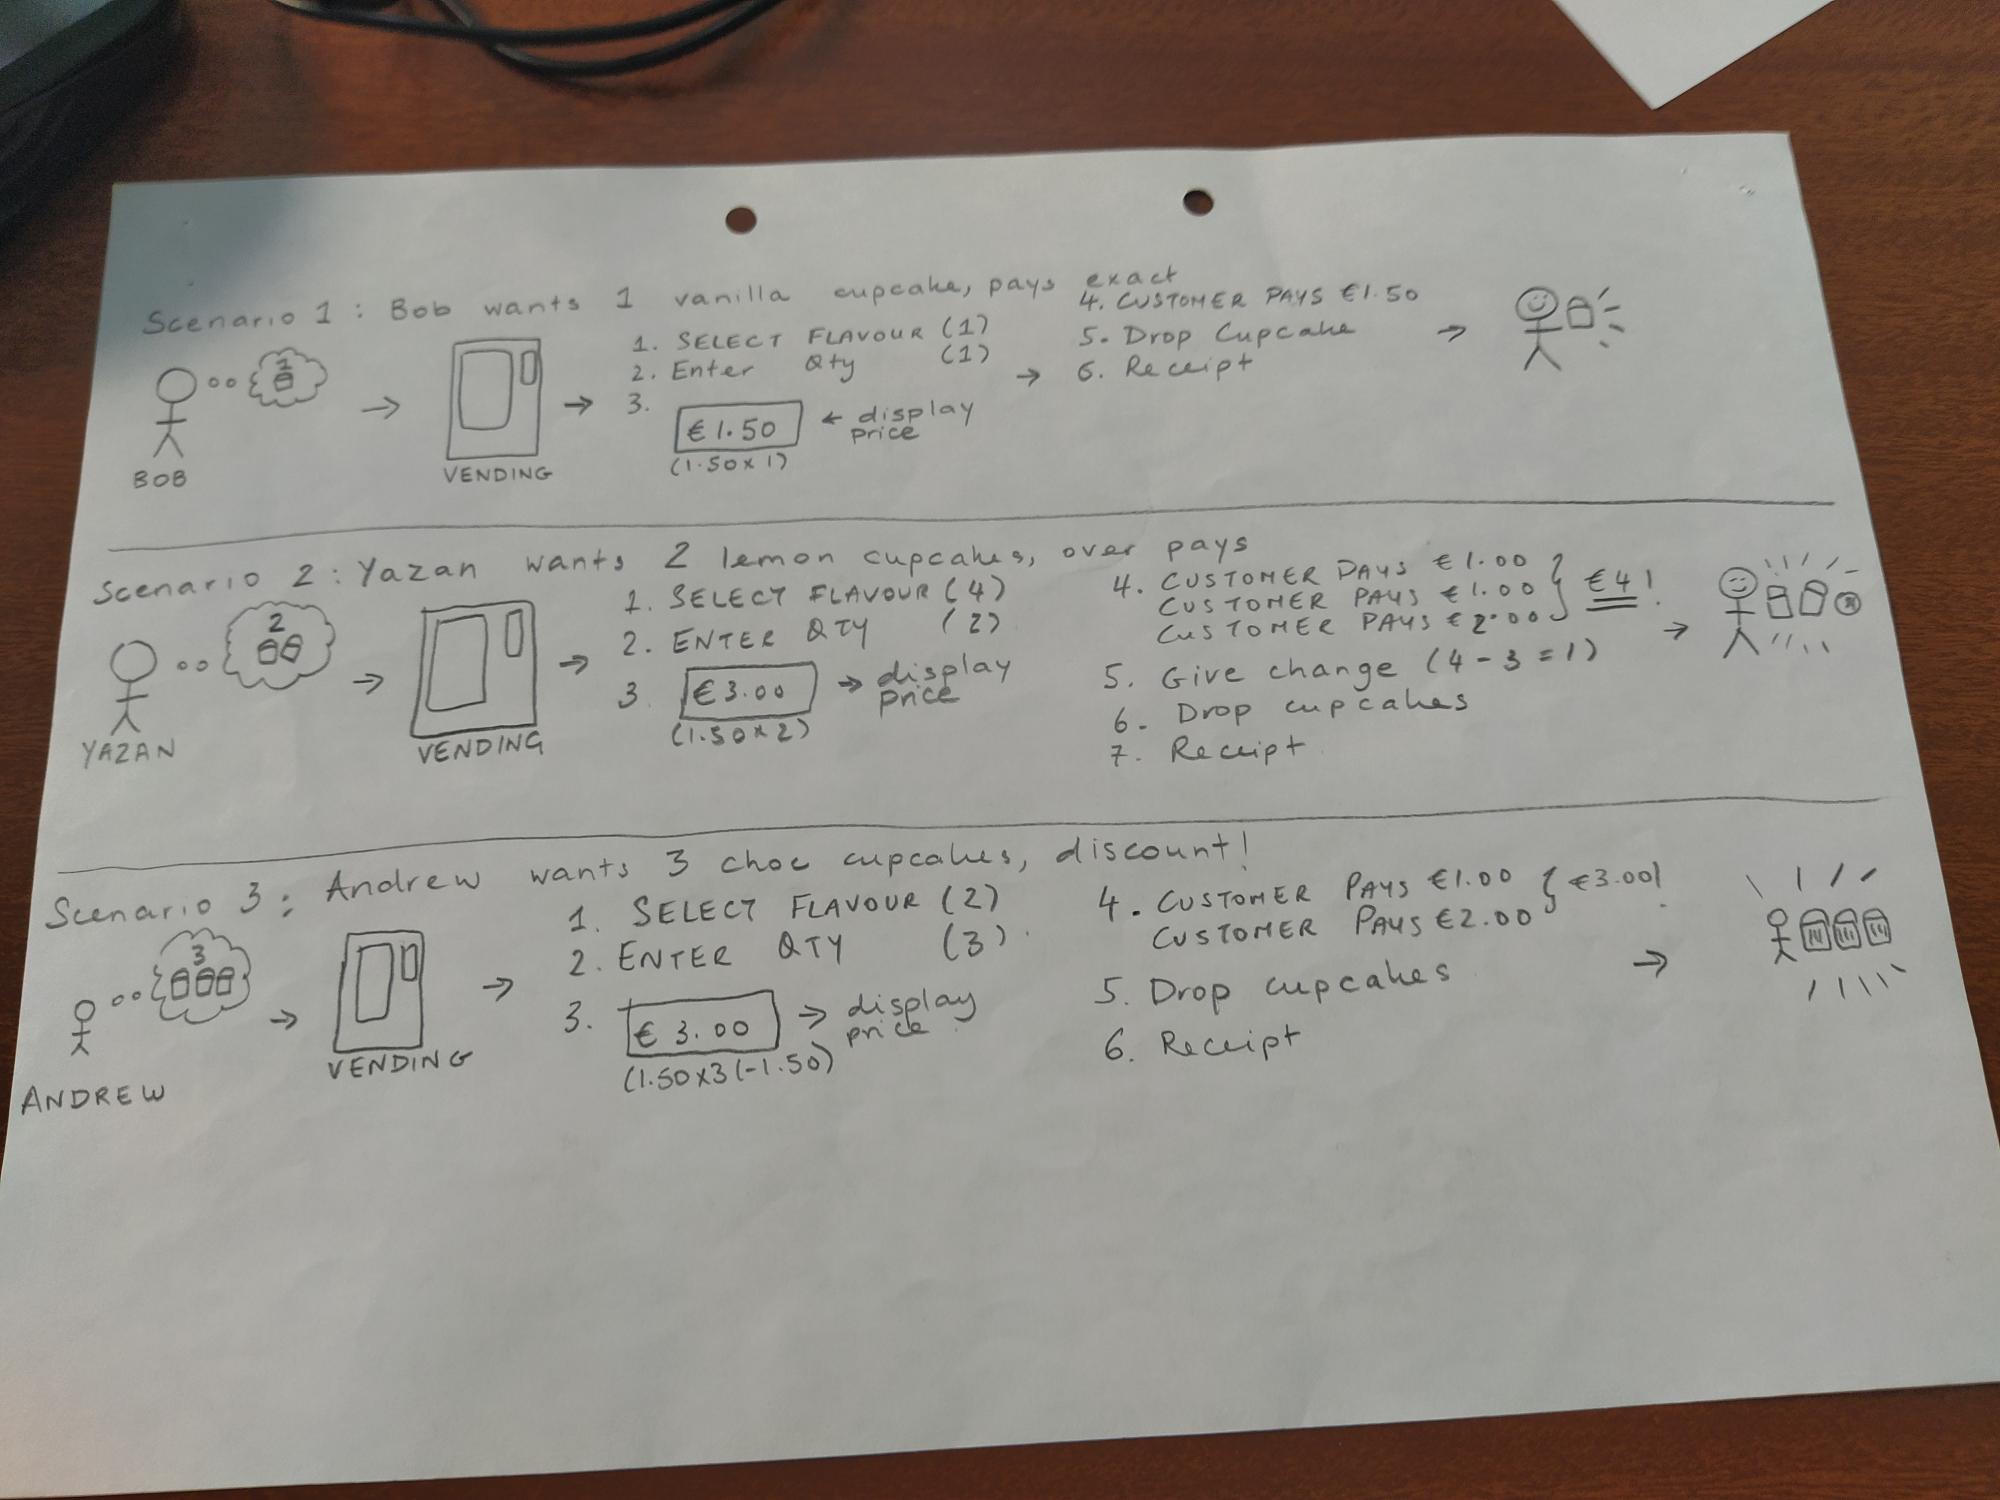 Scenario 1 : Bob wants 1 vanilla cupcake, pays exact
1
BOB
VENDING
1. SELECT FLAVOUR (1)
2. Enter Qty (1)
3. €1.50 ← display price
(1.50x1)
4. CUSTOMER PAYS €1.50
5. Drop Cupcake
6. Receipt
Scenario 2 : Yazan wants 2 lemon cupcakes, over pays
2
YAZAN
VENDING
1. SELECT FLAVOUR (4)
2. ENTER QTY (2)
3. €3.00 → display price
(1.50x2)
4. CUSTOMER PAYS €1.00
CUSTOMER PAYS €1.00
CUSTOMER PAYS €2.00 } €4!
5. Give change (4-3=1)
6. Drop cupcakes
7. Receipt
Scenario 3 : Andrew wants 3 choc cupcakes, discount!
3
ANDREW
VENDING
1. SELECT FLAVOUR (2)
2. ENTER QTY (3).
3. €3.00 → display price
(1.50x3(-1.50)
4. CUSTOMER PAYS €1.00
CUSTOMER PAYS €2.00 } €3.00!
5. Drop cupcakes
6. Receipt